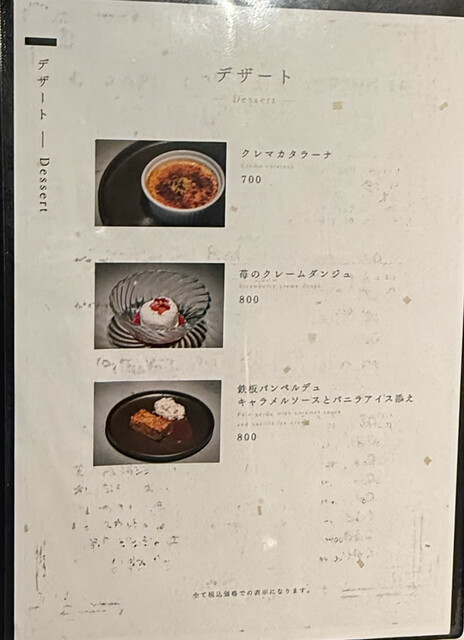 デザート — Dessert
デザート
— Dessert —
クレマカタラーナ
700
苺のクレームダンジュ
800
鉄板パンペルデュ
キャラメルソースとバニラアイス添え
Pain perdu with caramel sauce
and vanilla ice cream
800
全て税込価格での表示になります。